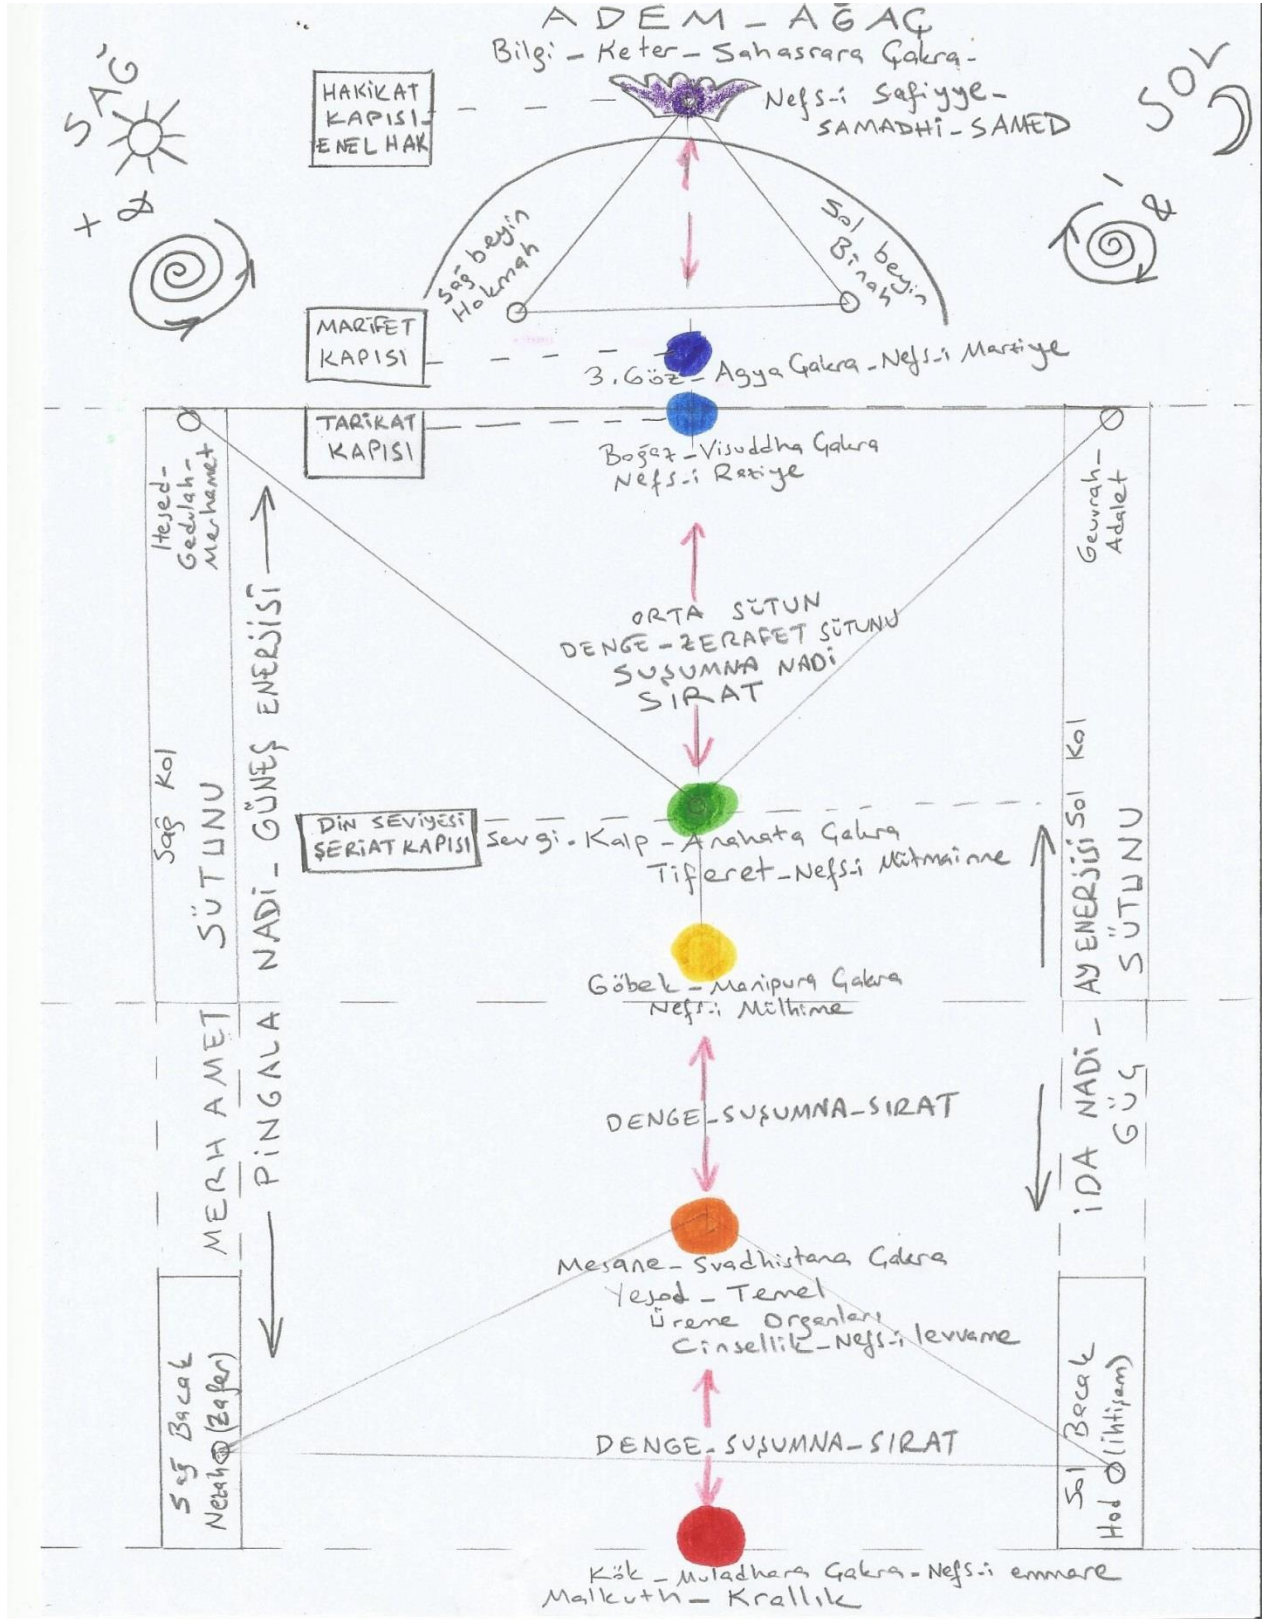 ADEM - AĞAÇ
Bilgi - Keter - Sahasrara Çakra -
Nefs-i Safiyye -
SAMADHİ - SAMED
SAĞ
SOL
HAKİKAT
KAPISI -
ENEL HAK
+ &
- &
Sağ beyin
Hokmah
Sol beyin
Binah
MARİFET
KAPISI
3. Göz - Agya Çakra - Nefs-i Marziye
TARİKAT
KAPISI
Boğaz - Visuddha Çakra
Nefs-i Raziye
Hesed -
Gedulah -
Merhamet
Gevurah -
Adalet
ORTA SÜTUN
DENGE - ZERAFET SÜTUNU
SUŞUMNA NADİ
SIRAT
Sağ Kol
MERHAMET SÜTUNU
PİNGALA NADİ - GÜNEŞ ENERJİSİ
Sol Kol
İDA NADİ - AY ENERJİSİ
GÜÇ SÜTUNU
DİN SEVİYESİ
ŞERİAT KAPISI
Sevgi - Kalp - Anahata Çakra
Tiferet - Nefs-i Mütmainne
Göbek - Manipura Çakra
Nefs-i Mülhime
DENGE - SUŞUMNA - SIRAT
Mesane - Svadhistana Çakra
Yesod - Temel
Üreme Organları
Cinsellik - Nefs-i levvame
Sağ Bacak
Nezah (Zafer)
Sol Bacak
Hod (İhtişam)
DENGE - SUŞUMNA - SIRAT
Kök - Muladhara Çakra - Nefs-i emmare
Malkuth - Krallık